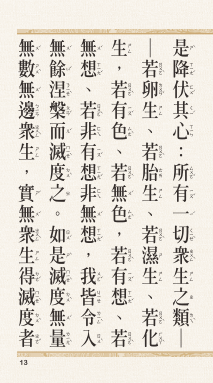 是降伏其心：所有一切眾生之類—
—若卵生、若胎生、若濕生、若化
生，若有色、若無色，若有想、若
無想、若非有想非無想，我皆令入
無餘涅槃而滅度之。如是滅度無量
無數無邊眾生，實無眾生得滅度者
13